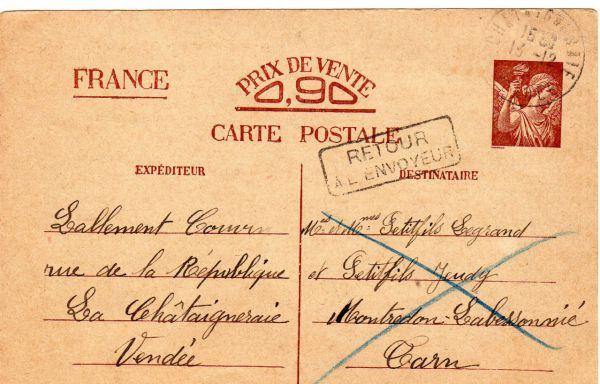 FRANCE
PRIX DE VENTE
0,90
CARTE POSTALE
RETOUR
À L'ENVOYEUR
EXPÉDITEUR
Lallement
rue de la République
La Châtaigneraie
Vendée
DESTINATAIRE
et Petitfils Legrand
et Petitfils Jeudy
Montredon-Labessonnié
Tarn